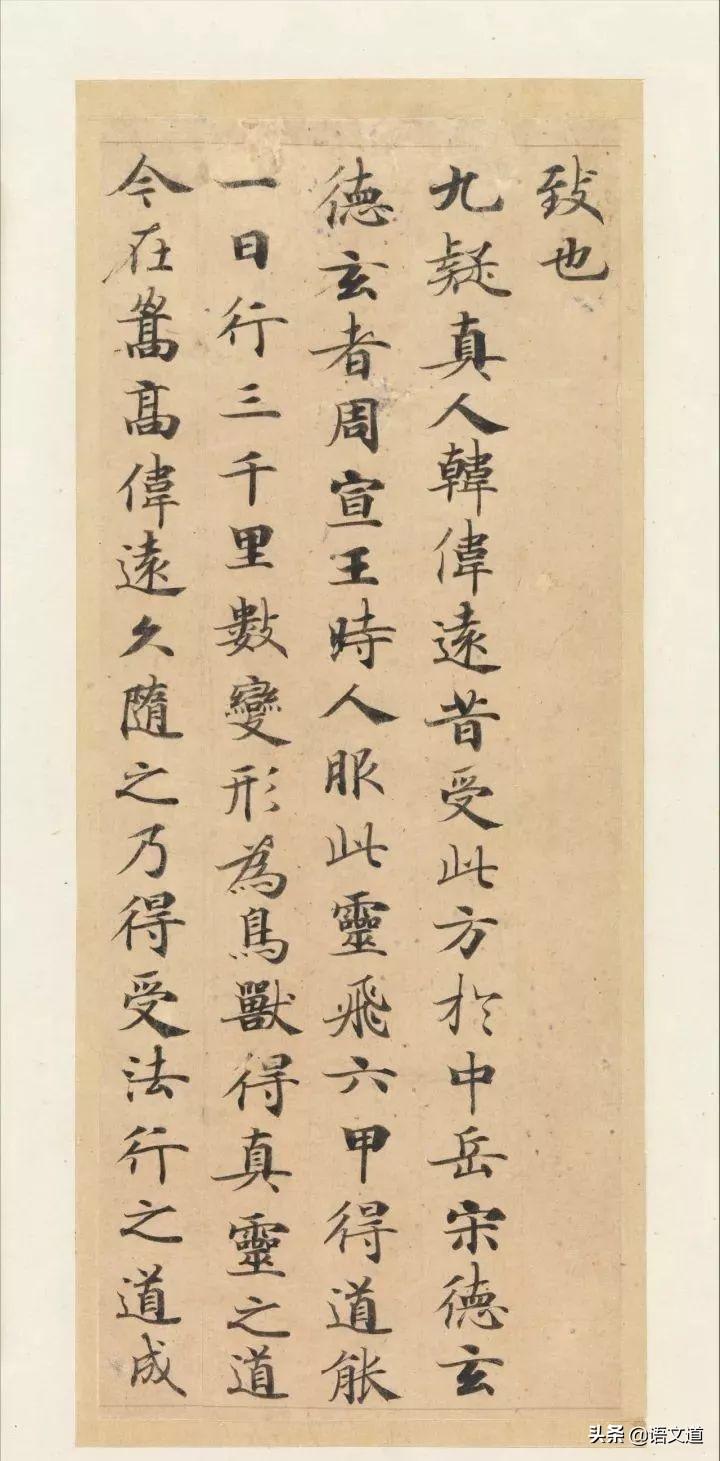 致也
九疑真人韓偉遠昔受此方於中岳宋德玄
德玄者周宣王時人服此靈飛六甲得道能
一日行三千里數變形為鳥獸得真靈之道
今在嵩高偉遠久隨之乃得受法行之道成
头条 @语文道